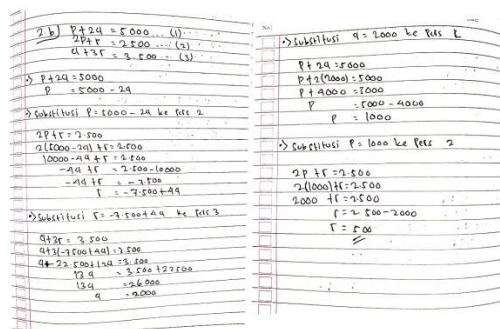 2.b) P+2q = 5000 ... (1)
2P+r = 2.500 ... (2)
q+3r = 3.500 ... (3)
•> P+2q = 5000
P = 5000 - 2q
•> Substitusi P = 5000 - 2q ke Pers 2
2P+r = 2.500
2(5000-2q)+r = 2.500
10000-4q+r = 2.500
-4q+r = 2.500-10000
-4q+r = -7.500
r = -7.500+4q
•> Substitusi r = -7.500+4q ke Pers 3
q+3r = 3.500
q+3(-7500+4q) = 3.500
q-22.500+12q = 3.500
13q = 3.500+22500
13q = 26000
q = 2000
•> Substitusi q = 2000 ke Pers 1
P+2q = 5000
P+2(2000) = 5000
P+4000 = 5000
P = 5000 - 4000
P = 1000
•> Substitusi P = 1000 ke Pers 2
2P+r = 2.500
2(1000)+r = 2.500
2000+r = 2.500
r = 2.500-2000
r = 500